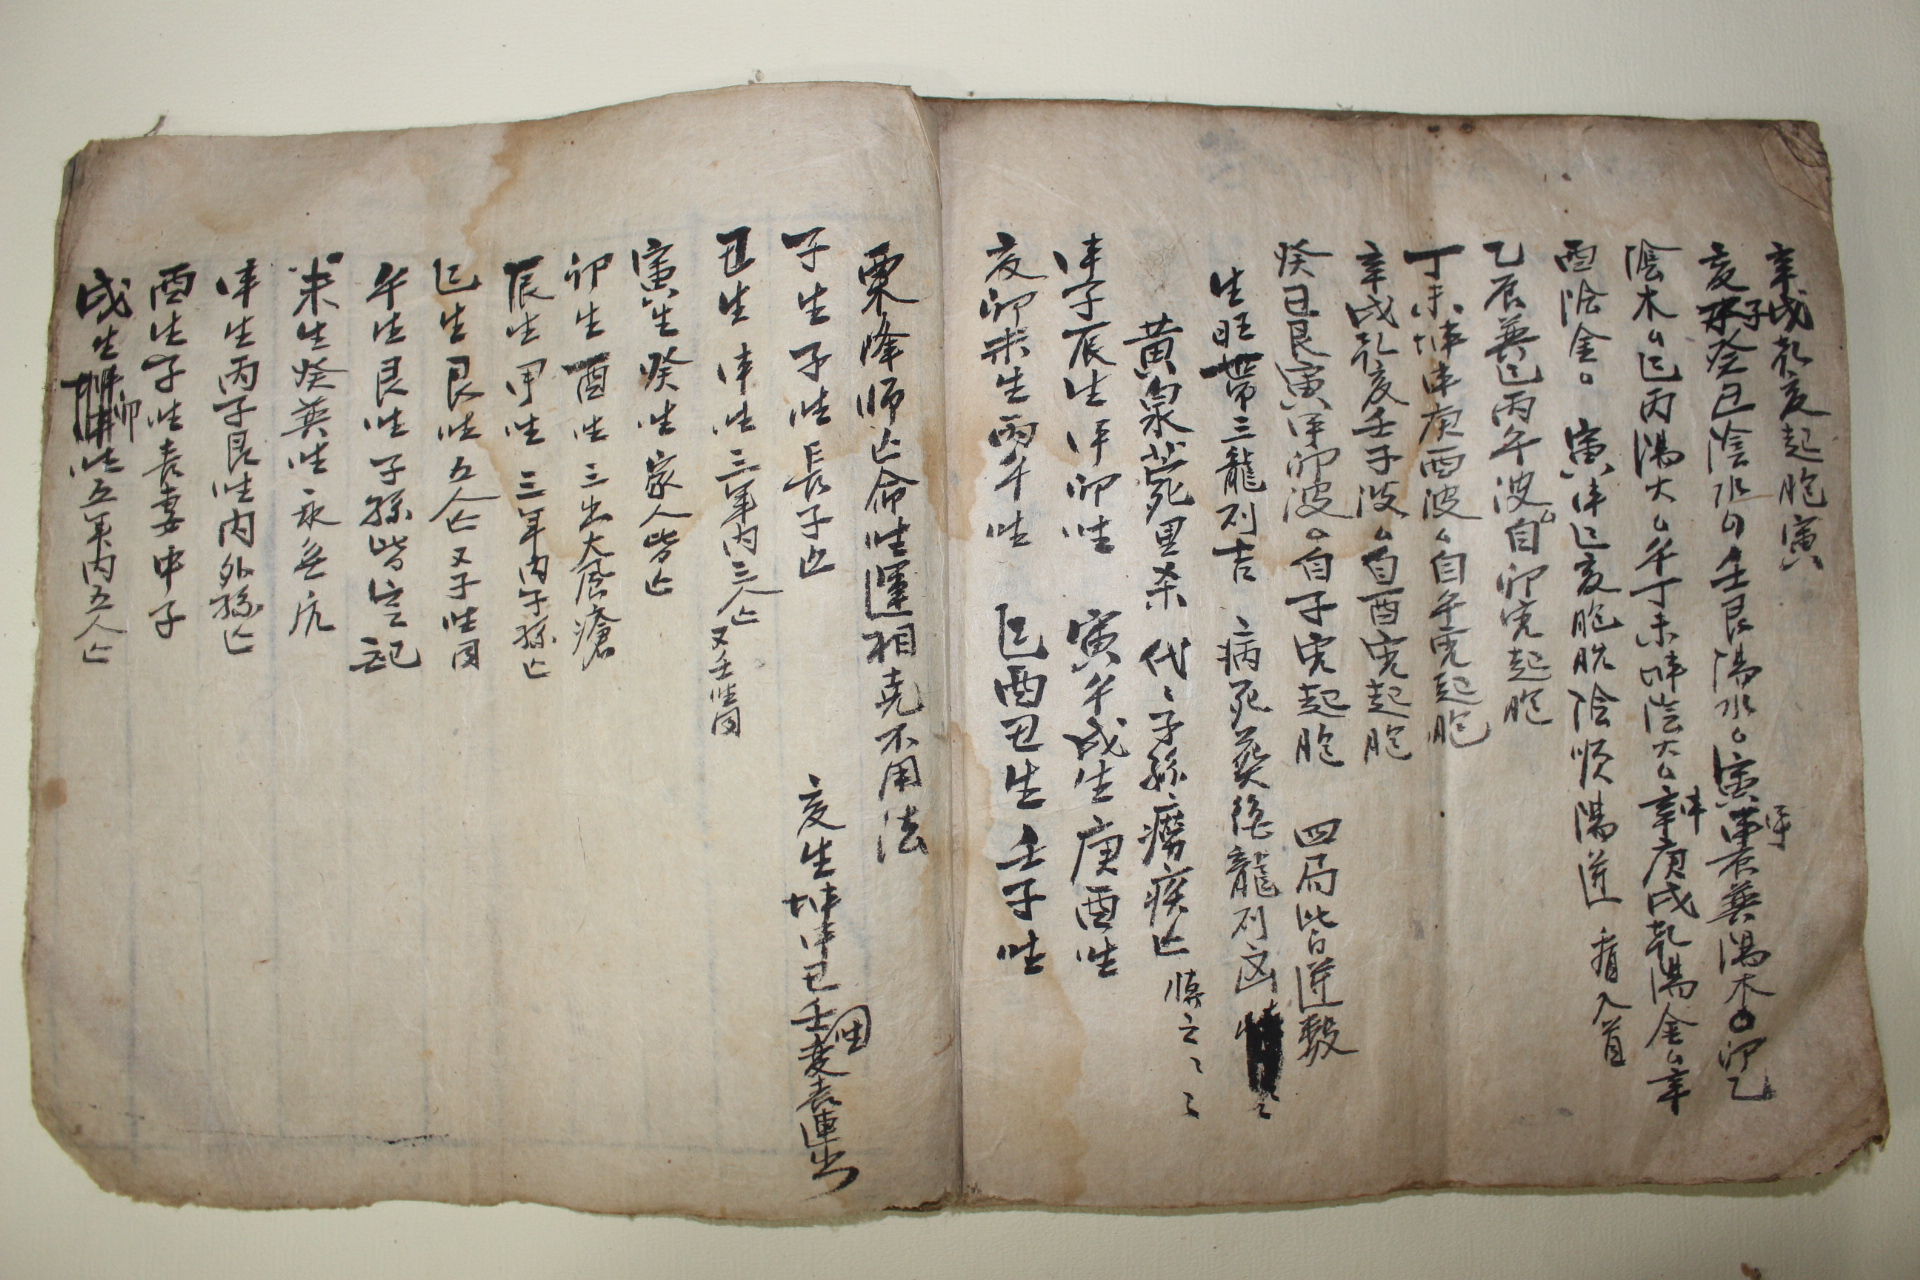 辛戌乾亥起胞寅
亥子癸丑陰水 壬艮陽水 寅甲巽陽木 卯乙
陰木 巳丙陽火 午丁未坤陰火 辛庚戌乾陽金 辛
酉陰金 寅申巳亥胞胱陰順陽逆 看入首
乙辰巽巳丙午波自卯宮起胞
丁未坤申庚酉波自午宮起胞
辛戌乾亥壬子波自酉宮起胞
癸丑艮寅甲卯波自子宮起胞 四局皆逆數
生旺帶三龍列吉 病死葬絶龍列凶
黃泉 曺 殺 代々子孫癆疾亡 愼之
申子辰生甲卯坐 寅午戌生庚酉坐
亥卯未生丙午坐 巳酉丑生壬子坐
亡命坐運相克不用法
子生子坐長子亡
亥生坤申丑壬坐
丑生申坐三年內三人亡 又壬坐同
寅生癸坐家人皆亡
卯生酉坐三出大風瘡
辰生甲坐三年內子孫亡
巳生艮坐五人亡又子坐同
午生艮坐子孫皆亡
未生癸巽坐
申生丙子艮坐內外孫亡
酉生子坐喪妻中子
戌生卯坐五年內五人亡